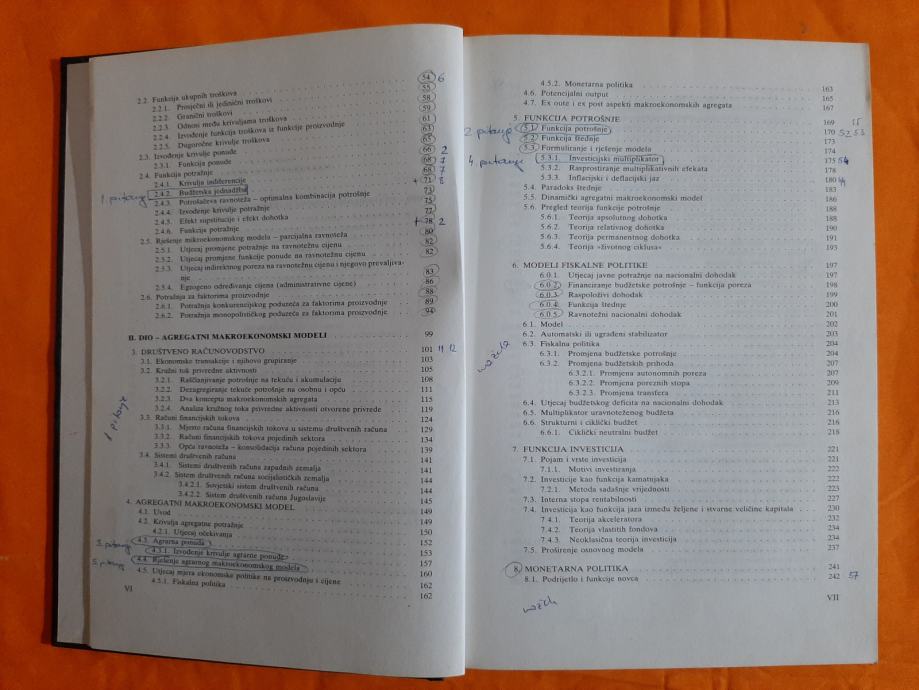 2.2. Funkcija ukupnih troškova 54 6
2.2.1. Prosječni ili jedinični troškovi 55
2.2.2. Granični troškovi 58
2.2.3. Odnosi među krivuljama troškova 59
2.2.4. Izvođenje funkcija troškova iz funkcije proizvodnje 61
2.2.5. Dugoročne krivulje troškova 63
2.3. Izvođenje krivulje ponude 65
2.3.1. Funkcija ponude 66 2
2.4. Funkcija potražnje 68 7
2.4.1. Krivulja indiferencije 68 7
1. pitanje 2.4.2. Budžetska jednadžba + 71 8
2.4.3. Potrošačeva ravnoteža – optimalna kombinacija potrošnje 73
2.4.4. Izvođenje krivulje potražnje 75
2.4.5. Efekt supstitucije i efekt dohotka 77
2.4.6. Funkcija potražnje + 78 2
2.5. Rješenje mikroekonomskog modela – parcijalna ravnoteža 80
2.5.1. Utjecaj promjene potražnje na ravnotežnu cijenu 82
2.5.2. Utjecaj promjene funkcije ponude na ravnotežnu cijenu 82
2.5.3. Utjecaj indirektnog poreza na ravnotežnu cijenu i njegovo prevaljiva-
nje 83
2.5.4. Egzogeno određivanje cijena (administrativne cijene) 86
2.6. Potražnja za faktorima proizvodnje 88
2.6.1. Potražnja konkurencijskog poduzeća za faktorima proizvodnje 89
2.6.2. Potražnja monopolističkog poduzeća za faktorima proizvodnje 94
II. DIO – AGREGATNI MAKROEKONOMSKI MODELI 99
3. DRUŠTVENO RAČUNOVODSTVO 101 11 12
3.1. Ekonomske transakcije i njihovo grupiranje 103
3.2. Kružni tok privredne aktivnosti 105
3.2.1. Raščlanjivanje potrošnje na tekuću i akumulaciju 108
3.2.2. Dezagregiranje tekuće potrošnje na osobnu i opću 111
3.2.3. Dva koncepta makroekonomskih agregata 115
3.2.4. Analiza kružnog toka privredne aktivnosti otvorene privrede 119
1 pitanje
3.3. Računi financijskih tokova 124
3.3.1. Mjesto računa financijskih tokova u sistemu društvenih računa 129
3.3.2. Računi financijskih tokova pojedinih sektora 134
3.3.3. Opća ravnoteža – konsolidacija računa pojedinih sektora 139
3.4. Sistemi društvenih računa 141
3.4.1. Sistemi društvenih računa zapadnih zemalja 141
3.4.2. Sistem društvenih računa socijalističkih zemalja 144
3.4.2.1. Sovjetski sistem društvenih računa 144
3.4.2.2. Sistem društvenih računa Jugoslavije 145
4. AGREGATNI MAKROEKONOMSKI MODEL 149
4.1. Uvod 149
4.2. Krivulja agregatne potražnje 150
4.2.1. Utjecaj očekivanja 150
3. pitanje 4.3. Agrarna ponuda 152
4.3.1. Izvođenje krivulje agrarne ponude 153
5. pitanje 4.4. Rješenje agrarnog makroekonomskog modela 157
4.5. Utjecaj mjera ekonomske politike na proizvodnju i cijene 160
4.5.1. Fiskalna politika 162
VI
4.5.2. Monetarna politika 163
4.6. Potencijalni output 165
4.7. Ex oute i ex post aspekti makroekonomskih agregata 167
5. FUNKCIJA POTROŠNJE 169
2. pitanje 5.1. Funkcija potrošnje 170 52 53
5.2. Funkcija štednje 173
5.3. Formuliranje i rješenje modela 174
4. pitanje 5.3.1. Investicijski multiplikator 175 54
5.3.2. Rasprostiranje multiplikativnih efekata 178
5.3.3. Inflacijski i deflacijski jaz 180
5.4. Paradoks štednje 183
5.5. Dinamički agregatni makroekonomski model 186
5.6. Pregled teorija funkcije potrošnje 188
5.6.1. Teorija apsolutnog dohotka 188
5.6.2. Teorija relativnog dohotka 190
5.6.3. Teorija permanentnog dohotka 191
5.6.4. Teorija »životnog ciklusa« 193
6. MODELI FISKALNE POLITIKE 197
6.0.1. Utjecaj javne potražnje na nacionalni dohodak 197
6.0.2. Financiranje budžetske potrošnje – funkcija poreza 198
6.0.3. Raspoloživi dohodak 199
6.0.4. Funkcija štednje 200
6.0.5. Ravnotežni nacionalni dohodak 201
6.1. Model 202
6.2. Automatski ili ugrađeni stabilizator 203
6.3. Fiskalna politika 204
6.3.1. Promjena budžetske potrošnje 204
6.3.2. Promjena budžetskih prihoda 207
6.3.2.1. Promjena autonomnih poreza 207
6.3.2.2. Promjena poreznih stopa 209
6.3.2.3. Promjena transfera 211
6.4. Utjecaj budžetskog deficita na nacionalni dohodak 213
6.5. Multiplikator uravnoteženog budžeta 216
6.6. Strukturni i ciklički budžet 218
6.6.1. Ciklički neutralni budžet 218
7. FUNKCIJA INVESTICIJA 221
7.1. Pojam i vrste investicija 221
7.1.1. Motivi investiranja 222
7.2. Investicije kao funkcija kamatnjaka 222
7.2.1. Metoda sadašnje vrijednosti 223
7.3. Interna stopa rentabilnosti 227
7.4. Investicija kao funkcija jaza između željene i stvarne veličine kapitala 230
7.4.1. Teorija akceleratora 232
7.4.2. Teorija vlastitih fondova 234
7.4.3. Neoklasična teorija investicija 235
7.5. Proširenje osnovnog modela 237
8. MONETARNA POLITIKA 241
8.1. Podrijetlo i funkcije novca 242 57
VII